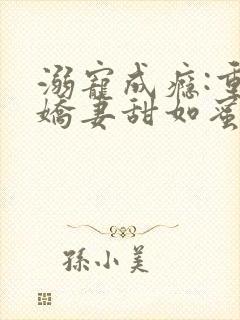 溺寵成癮:重
嬌妻甜如蜜
孫小美